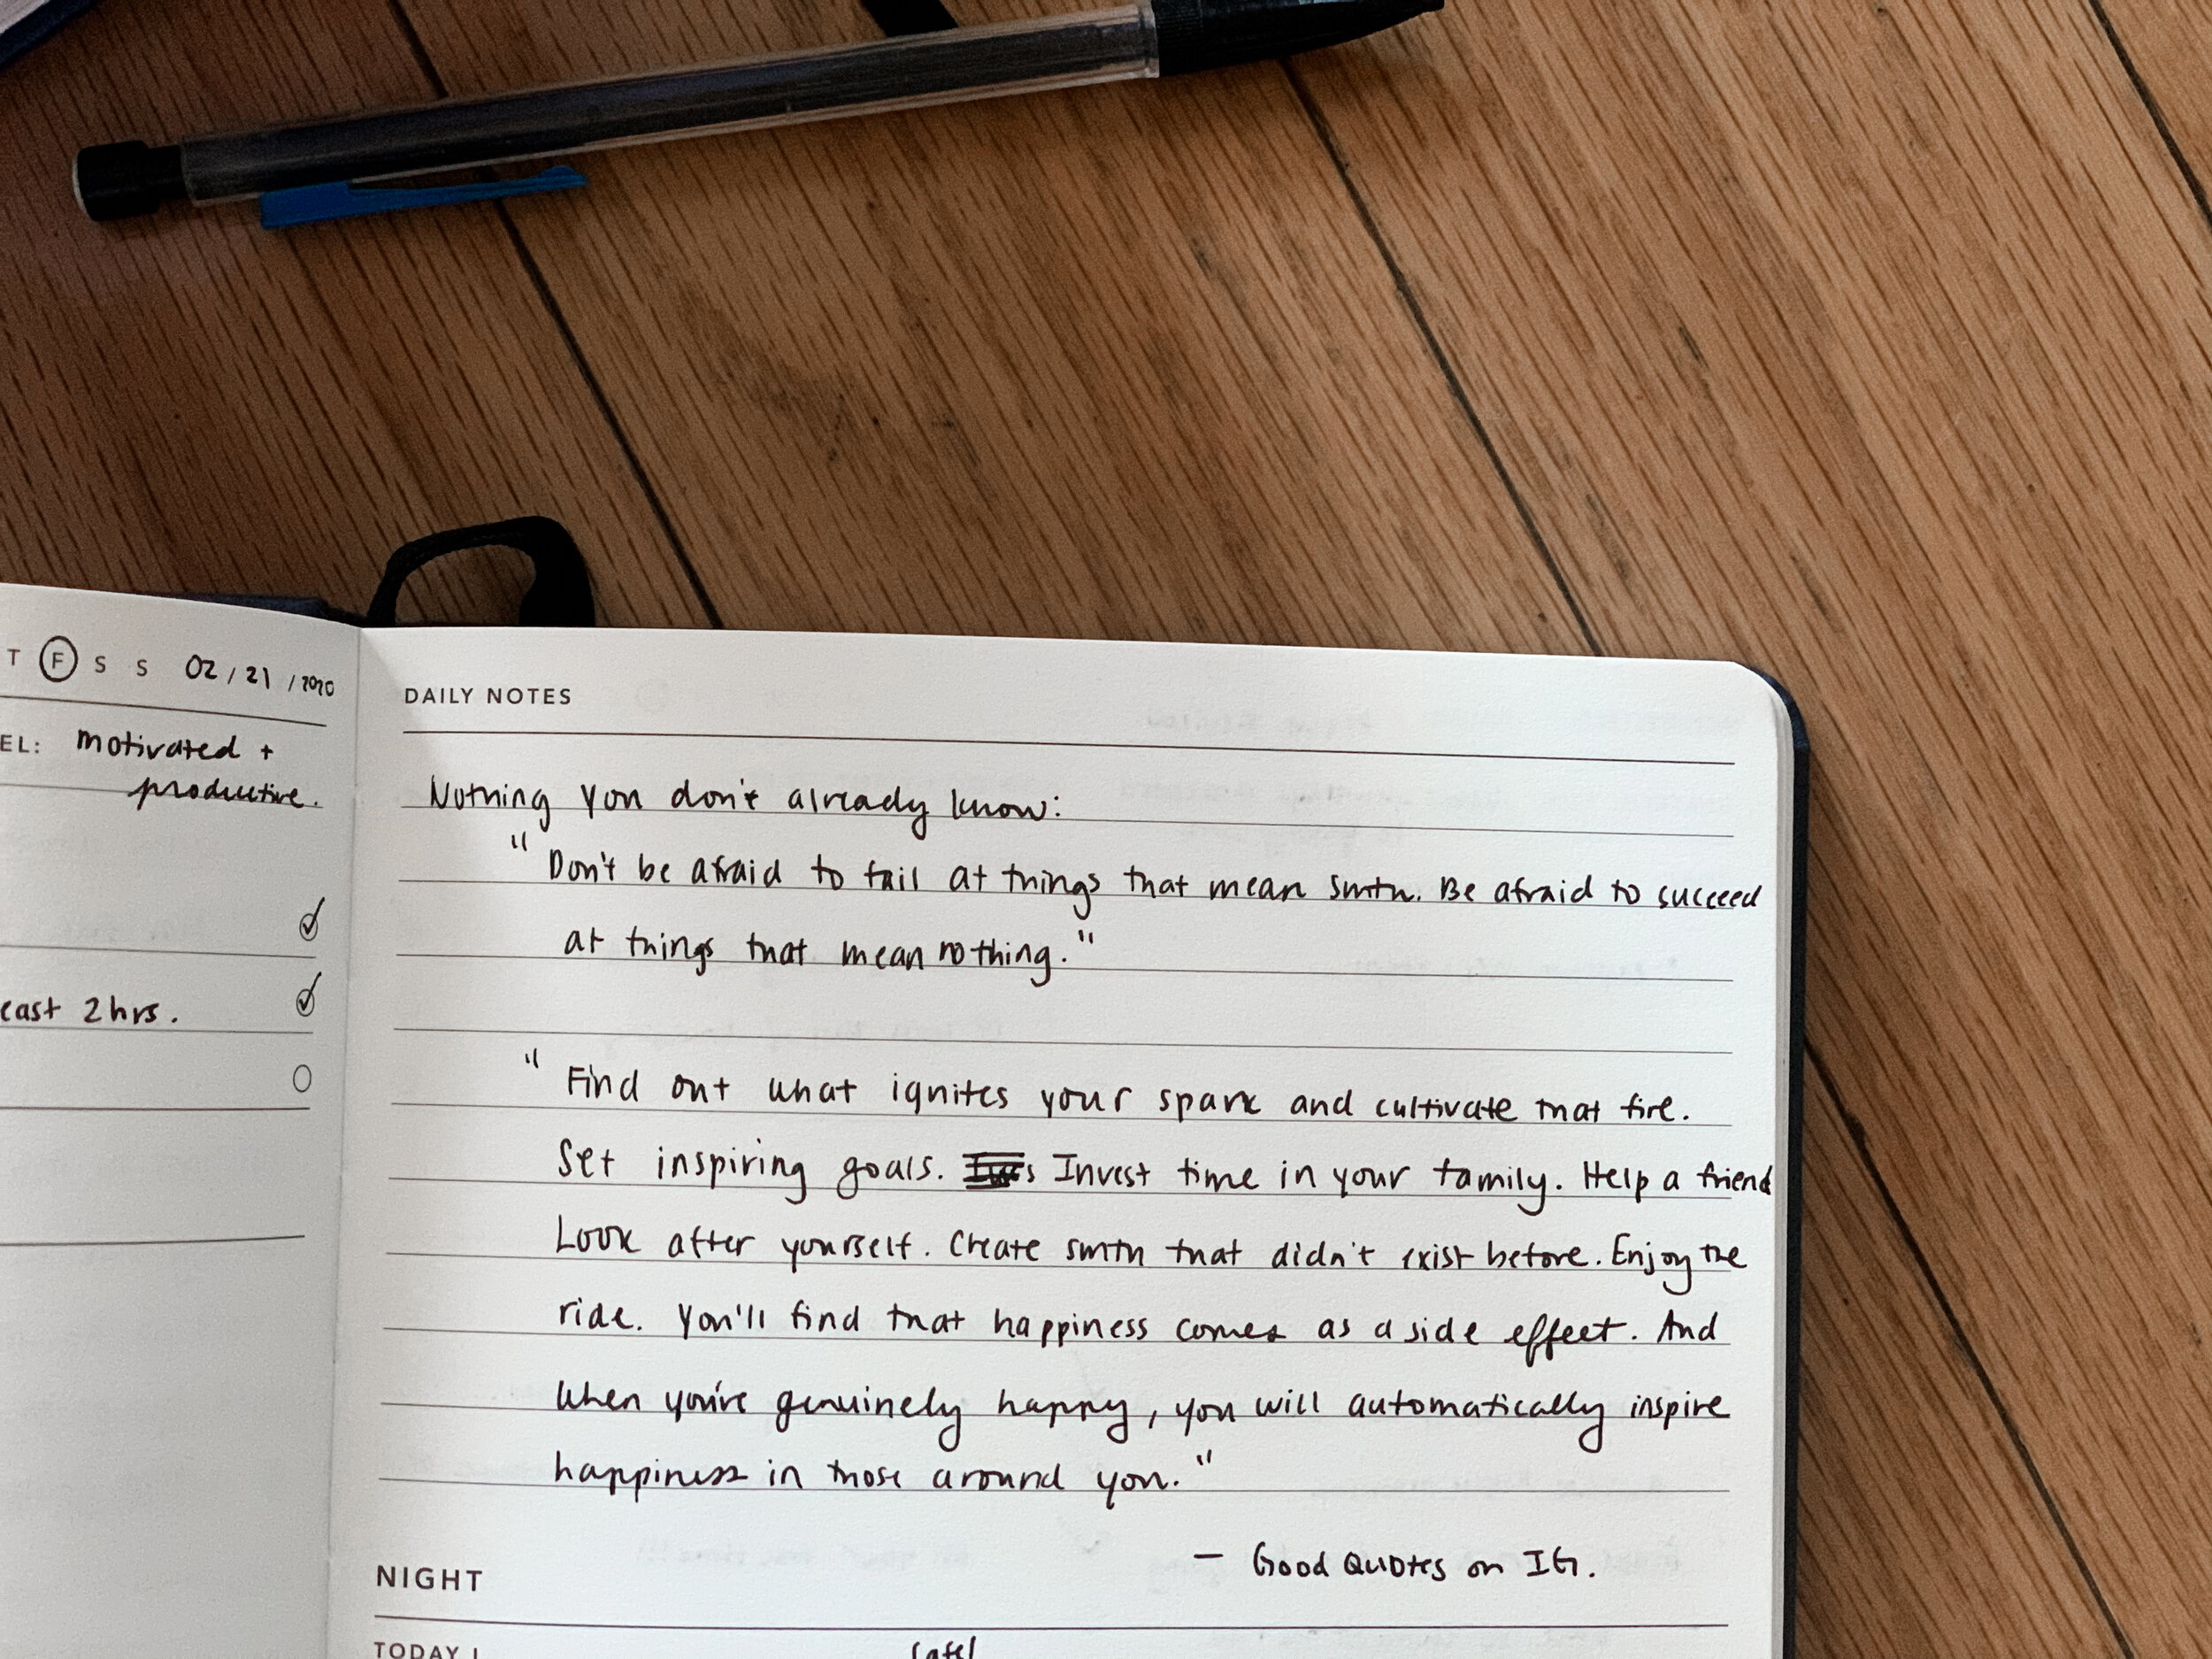 T F S S 02/21/2020
EL: motivated +
productive.
east 2 hrs.
DAILY NOTES
Nothing you don't already know:
"Don't be afraid to fail at things that mean smth. Be afraid to succeed
at things that mean nothing."
"Find out what ignites your spark and cultivate that fire.
Set inspiring goals. Invest time in your family. Help a friend
Look after yourself. Create smth that didn't exist before. Enjoy the
ride. You'll find that happiness comes as a side effect. And
when you're genuinely happy, you will automatically inspire
happiness in those around you."
— Good Quotes on IG.
NIGHT
TODAY I